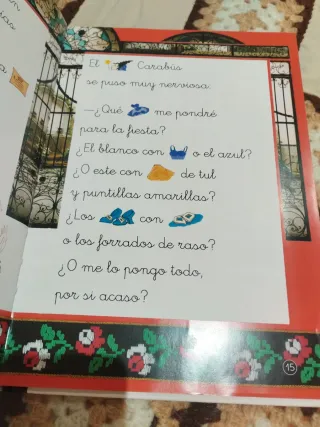 El Carabús
se puso muy nerviosa.
—¿Qué me pondré
para la fiesta?
¿El blanco con o el azul?
¿O este con de tul
y puntillas amarillas?
¿Los con
o los forrados de raso?
¿O me lo pongo todo,
por si acaso?
15